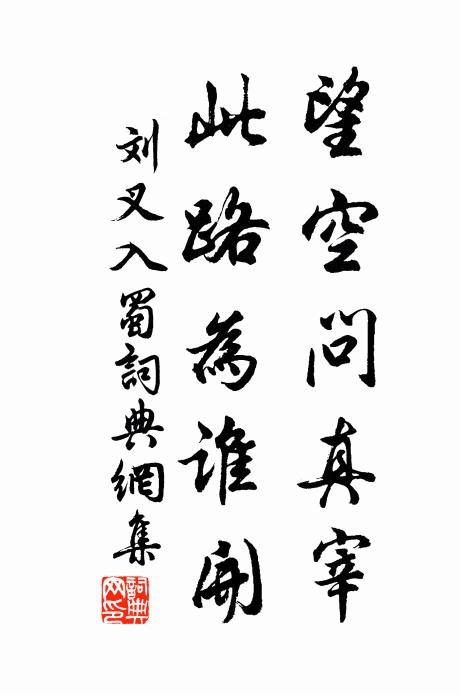 望空問真宰
此路為誰開
刘叉入蜀詞典網集
詞典网印